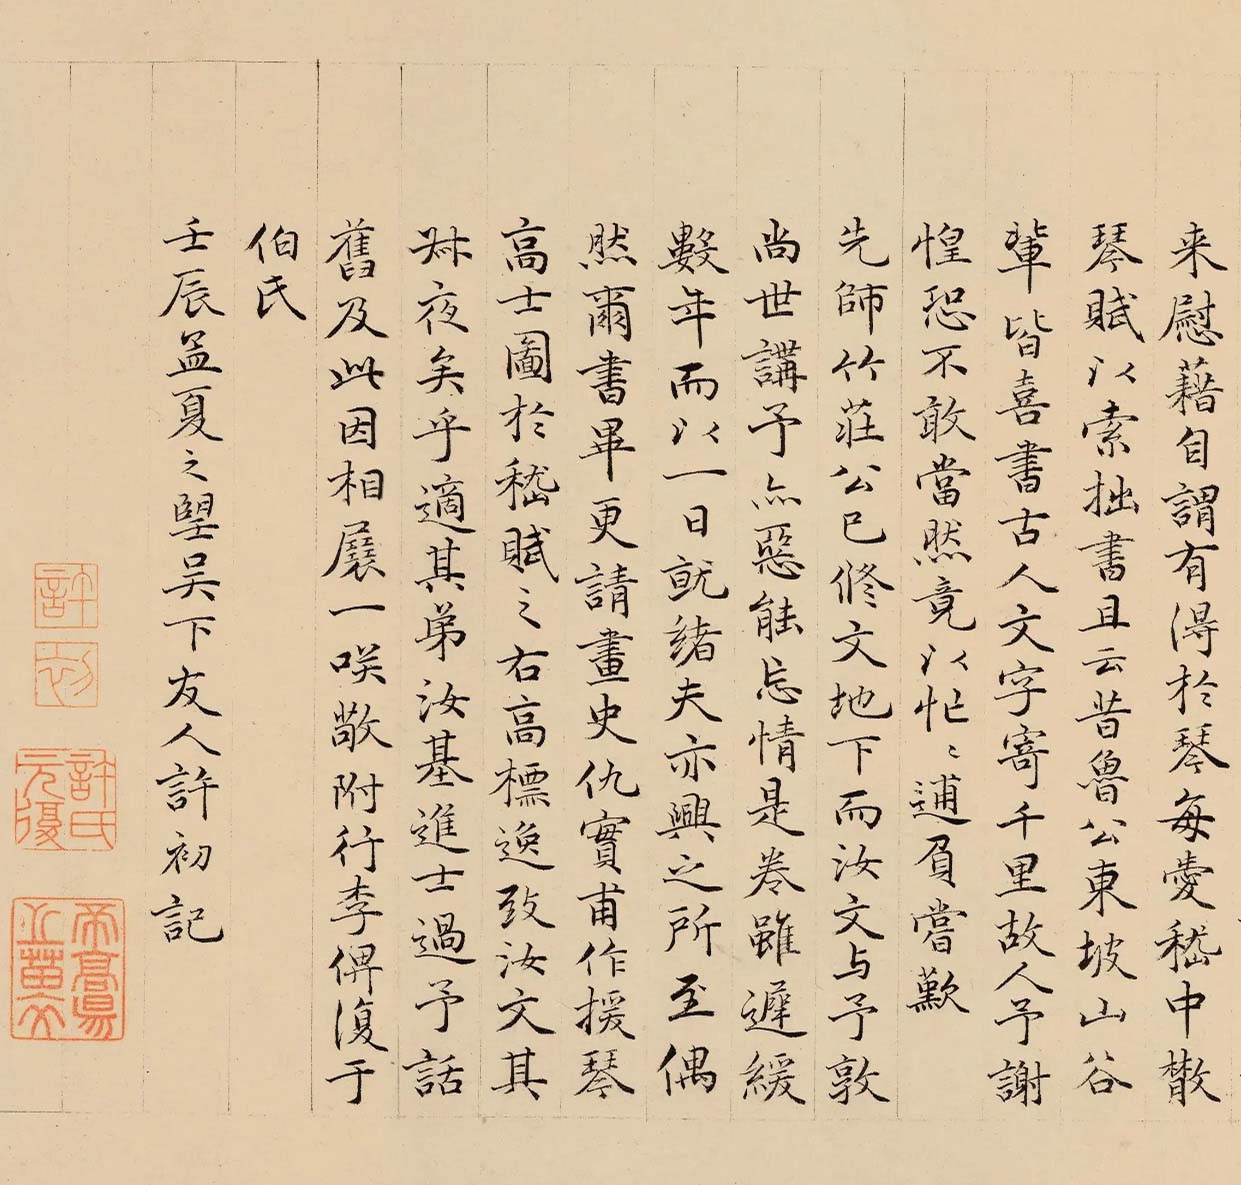 来慰藉自謂有得於琴每愛嵇中散
琴賦以索拙書且云昔魯公東坡山谷
輩皆喜書古人文字寄千里故人予謝
惶恐不敢當然竟以忙〻逋負嘗歎
先師竹莊公已修文地下而汝文与予敦
尚世講予亦惡能忘情是卷雖遲緩
數年而以一日就緒夫亦興之所至偶
然爾書畢更請畫史仇實甫作援琴
高士圖於嵇賦之右高標逸致汝文其
叔夜矣乎適其弟汝基進士過予話
舊及此因相展一咲敬附行李俾復于
伯氏
壬辰孟夏之朢吴下友人許初記
許初
許氏元復
帝高易之苗裔